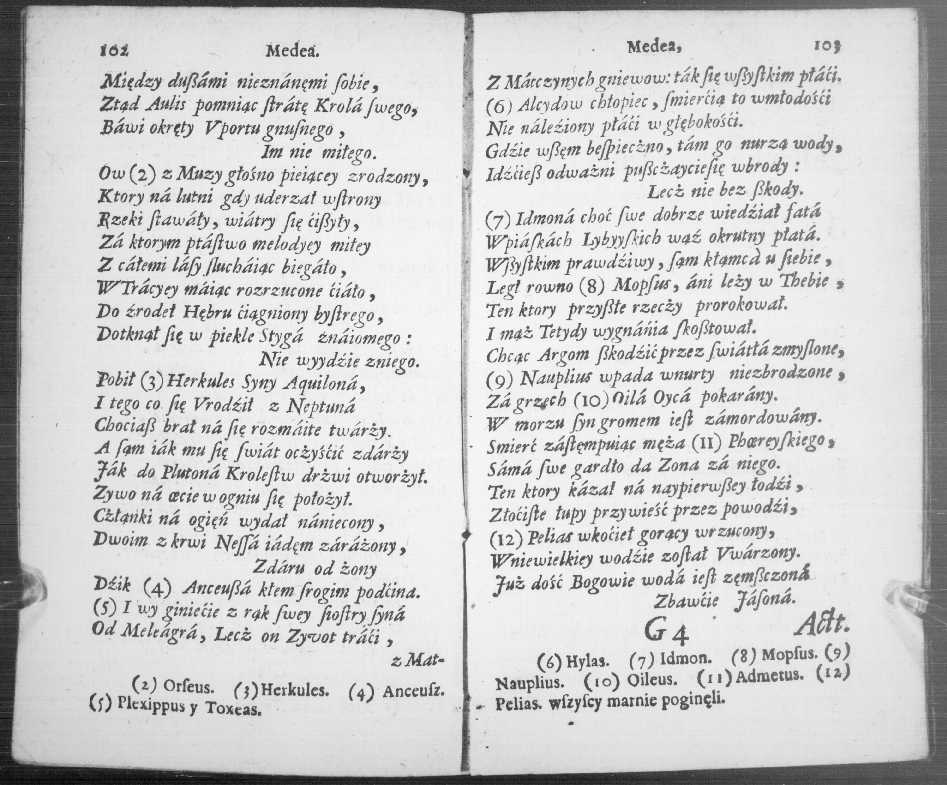 102 Medea.
Między dußámi nieznánęmi ſobie,
Ztąd Aulis pomniąc ſtrátę Krolá ſwego,
Báwi okręty Vportu gnuſnego,
Im nie miłego.
Ow (2) z Muzy głośno pieiącey zrodzony,
Ktory ná lutni gdy uderzał wſtrony
Rzeki ſtawáły, wiátry ſię ćißyły,
Zá ktorym ptáſtwo melodyey miłey
Z cáłemi láſy ſłucháiąc biegáło,
W Trácyey máiąc rozrzucone ćiáło,
Do źrodeł Hębru ćiągniony byſtrego,
Dotknął ſię w piekle Stygá znáiomego:
Nie wyydźie zniego.
Pobił (3) Herkules Syny Aquiloná,
I tego co ſię Vrodźił z Neptuná
Chociaß brał ná ſię rozmáite twárży.
A ſąm iák mu ſię ſwiát oczyśćić zdárży
Ják do Plutoná Kroleſtw drżwi otworżył.
Zywo ná œcie w ogniu ſię położył.
Człąnki ná ogięń wydał nánieconý,
Dwoim z krwi Neſſá iádęm záráżony,
Zdáru od żony
Dźik (4) Anceußá kłem ſrogim podćina.
(5) I wy giniećie z rąk ſwey ſioſtry ſyná
Od Meleágrá, Lecż on Zyvot tráći,
z Mat-
(2) Orfeus. (3) Herkules. (4) Anceuſz.
(5) Plexippus y Toxeas.
Medea, 103
Z Máтczynych gniewow: ták ſię wßyſtkim płáći.
(6) Alcydow chłopiec, ſmierćią to wmłodośći
Nie náleźiony płáći w głębokośći.
Gdźie wßęm beſpiecżno, tám go nurzą wody,
Idźćieß odważni pußcżayćieſię wbrody:
Lecż nie bez ßkody.
(7) Idmoná choć ſwe dobrze wiedźiał fatá
Wpiáſkách Lybyyſkich wąż okrutny płatá.
Wßyſtkim prawdźiwy, ſąm kłąmcà u ſiebie,
Legł rowno (8) Mopſus, áni leży w Thebie,
Ten ktory przyßłe rzecży prorokował.
I mąż Tetydy wygnáńia ſkoßtował.
Chcąc Argom ßkodźić przez ſwiátłá zmyſlone,
(9) Nauplius wpada wnurty niezbrodzone,
Zá grzęch (10) Oilá Oycá pokarány.
W morzu ſyn gromem ieſt zámordowány.
Smierć záſtęmpuiąc męża (11) Phœreyſkiego,
Sámá ſwe gardło da Zona zá niego.
Ten ktory kázał ná naypierwßey łodźi,
Złoćiſte łupy przywieść przez powodźi,
(12) Pelias wkoćieł gorący wrzucony,
Wniewielkiey wodźie zoſtał Vwárzony.
Już dość Bogowie wodá ieſt zęmßczoná
Zbawćie Jáſoná.
G 4 Actt.
(6) Hylas. (7) Idmon. (8) Mopſus. (9)
Nauplius. (10) Oileus. (11) Admetus. (12)
Pelias. wſzyſcy marnie poginęli.